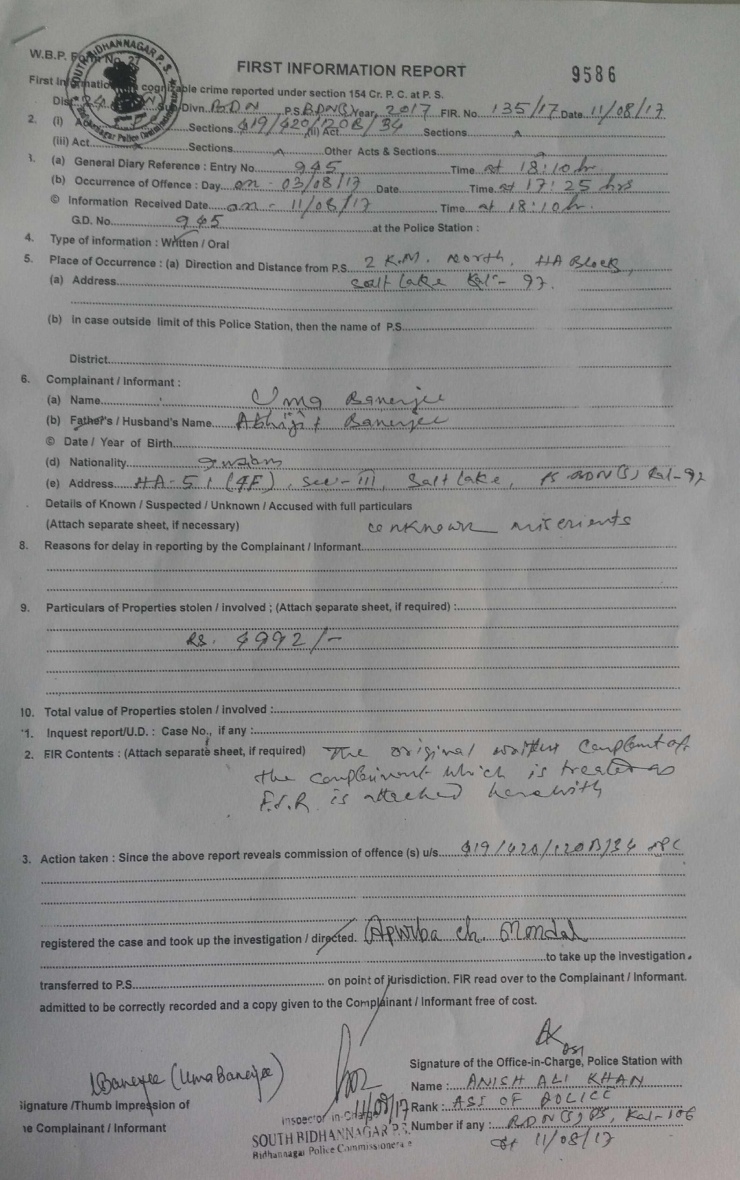 W.B.P. Form No. 27
SOUTH BIDHANNAGAR P.S.
Bidhannagar Police Commissionerate
FIRST INFORMATION REPORT
9586
First Information cognizable crime reported under section 154 Cr. P. C. at P. S.
Dist. Sub Divn. BDN P.S. BDN(S) Year, 2017 FIR. No. 135/17 Date 11/08/17
2. (i) Act Sections 419/420/120B/34 (ii) Act Sections
(iii) Act Sections Other Acts & Sections
1. (a) General Diary Reference : Entry No. 945 Time at 18:10 hr
(b) Occurrence of Offence : Day on - 03/08/17 Date Time at 17:25 hrs
© Information Received Date on - 11/08/17 Time at 18:10 hr.
G.D. No. 945 at the Police Station :
4. Type of information : Written / Oral
5. Place of Occurrence : (a) Direction and Distance from P.S. 2 K.M. North, HA Block,
(a) Address Salt Lake Kal - 97.
(b) in case outside limit of this Police Station, then the name of P.S.
District
6. Complainant / Informant :
(a) Name Uma Banerjee
(b) Father's / Husband's Name Abhijit Banerjee
© Date / Year of Birth
(d) Nationality Indian
(e) Address HA-51 (4F), Sec-III, Salt Lake, PS BDN(S), Kal-97
Details of Known / Suspected / Unknown / Accused with full particulars
(Attach separate sheet, if necessary) unknown miscrients
8. Reasons for delay in reporting by the Complainant / Informant
9. Particulars of Properties stolen / involved ; (Attach separate sheet, if required) :
RS. 4992/-
10. Total value of Properties stolen / involved :
1. Inquest report/U.D. : Case No., if any :
2. FIR Contents : (Attach separate sheet, if required) The original written complaint of
the complainant which is treated as
F.I.R. is attached herewith
3. Action taken : Since the above report reveals commission of offence (s) u/s 419/420/120B/34 IPC
registered the case and took up the investigation / directed. Apurba ch. Mondal
to take up the investigation.
transferred to P.S. on point of jurisdiction. FIR read over to the Complainant / Informant.
admitted to be correctly recorded and a copy given to the Complainant / Informant free of cost.
Banerjee (Uma Banerjee)
Signature /Thumb Impression of
he Complainant / Informant
11/08/17
Inspector in-Charge
SOUTH BIDHANNAGAR P.S.
Bidhannagar Police Commissionerate
Signature of the Office-in-Charge, Police Station with
Name : ANISH ALI KHAN
Rank : ASI OF POLICE
Number if any : BDN(S) PS, Kal-106
11/08/17